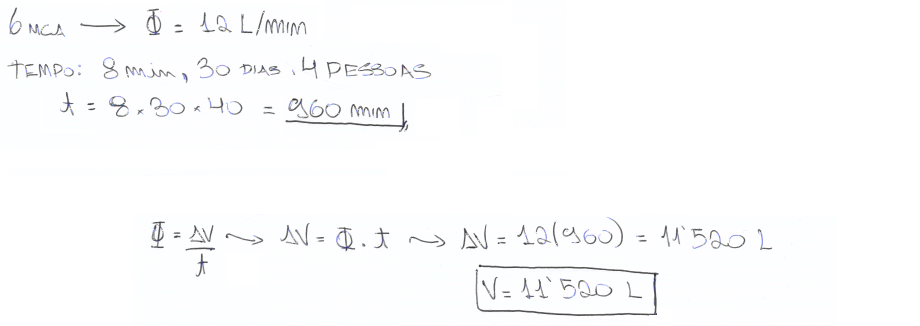 6 MCA → Φ = 12 L/min
TEMPO: 8 min, 30 DIAS, 4 PESSOAS
t = 8 × 30 × 40 = 960 min
Φ = ΔV/t ⤳ ΔV = Φ . t ⤳ ΔV = 12(960) = 11'520 L
V = 11'520 L